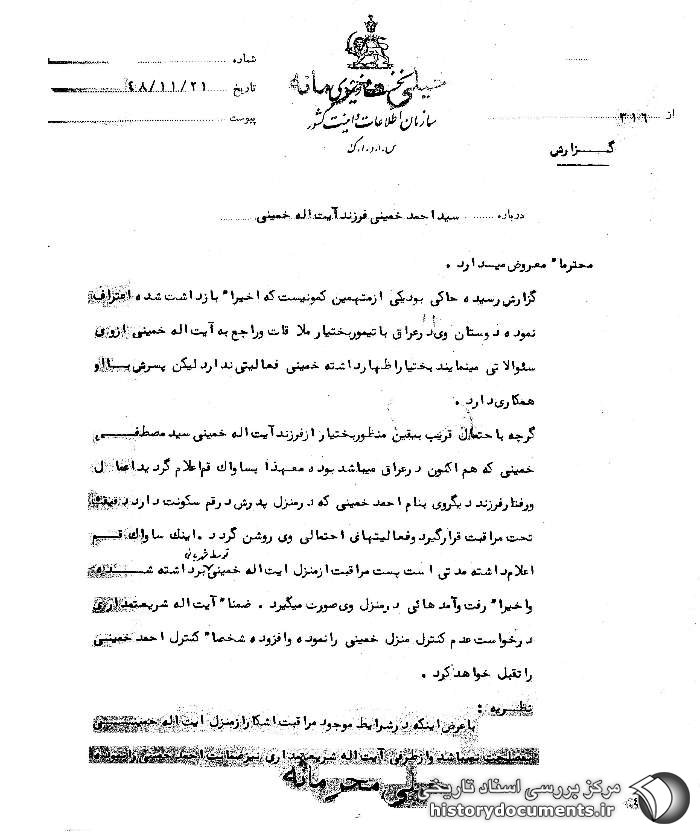 شماره
تاریخ ۴۸/۱۱/۲۱
پیوست
سازمان اطلاعات و امنیت کشور
س.ا.و.ا.ک
از ۳۱۶
گزارش
درباره سیداحمد خمینی فرزند آیت اله خمینی
محترما" معروض میدارد .
گزارش رسیده حاکی بود یکی از متهمین کمونیست که اخیرا" بازداشت شده اعتراف
نموده دوستان وی در عراق با تیمور بختیار ملاقات و راجع به آیت اله خمینی از وی
سئوالاتی مینمایند بختیار اظهار داشته خمینی فعالیتی ندارد لیکن پسرش با او
همکاری دارد .
گرچه با احتمال قریب بیقین منظور بختیار از فرزند آیت اله خمینی سید مصطفی
خمینی که هم اکنون در عراق میباشد بوده معهذا بساواک قم اعلام گردید اعمال
و رفتار فرزند دیگر وی بنام احمد خمینی که در منزل پدرش در قم سکونت دارد بدقت
تحت مراقبت قرار گیرد و فعالیتهای احتمالی وی روشن گردد . اینک ساواک قم
توسط شهربانی
اعلام داشته مدتی است پست مراقبت از منزل ایت اله خمینی برداشته شده
و اخیرا" رفت و آمدهائی در منزل وی صورت میگیرد . ضمنا" آیت اله شریعتمداری
درخواست عدم کنترل منزل خمینی را نموده و افزوده شخصا" کنترل احمد خمینی
را تقبل خواهد کرد .
نظریه :
با عرض اینکه در شرایط موجود مراقبت اشکارا از منزل ایت اله خمینی
بمصلحت نمیباشد و از طرفی آیت اله شریعتمداری نیز احمد خمینی را
خیلی محرمانه
مرکز بررسی اسناد تاریخی
historydocuments.ir